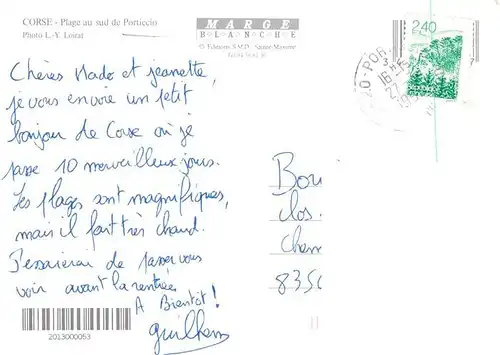 CORSE - Plage au sud de Porticcio
Photo L.-Y. Loirat
MARGE
BLANCHE
© Editions S.M.D.
Chères Mado et jeannette,
je vous envoie un petit
bonjour de Corse où je
passe 10 merveilleux jours.
Les plages sont magnifiques,
mais il fait très chaud.
J'essaierai de passer vous
voir avant la rentrée
A Bientôt !
guilhem
2013000053
2,40
16 H
27
Bou
Clos.
Chem
8350